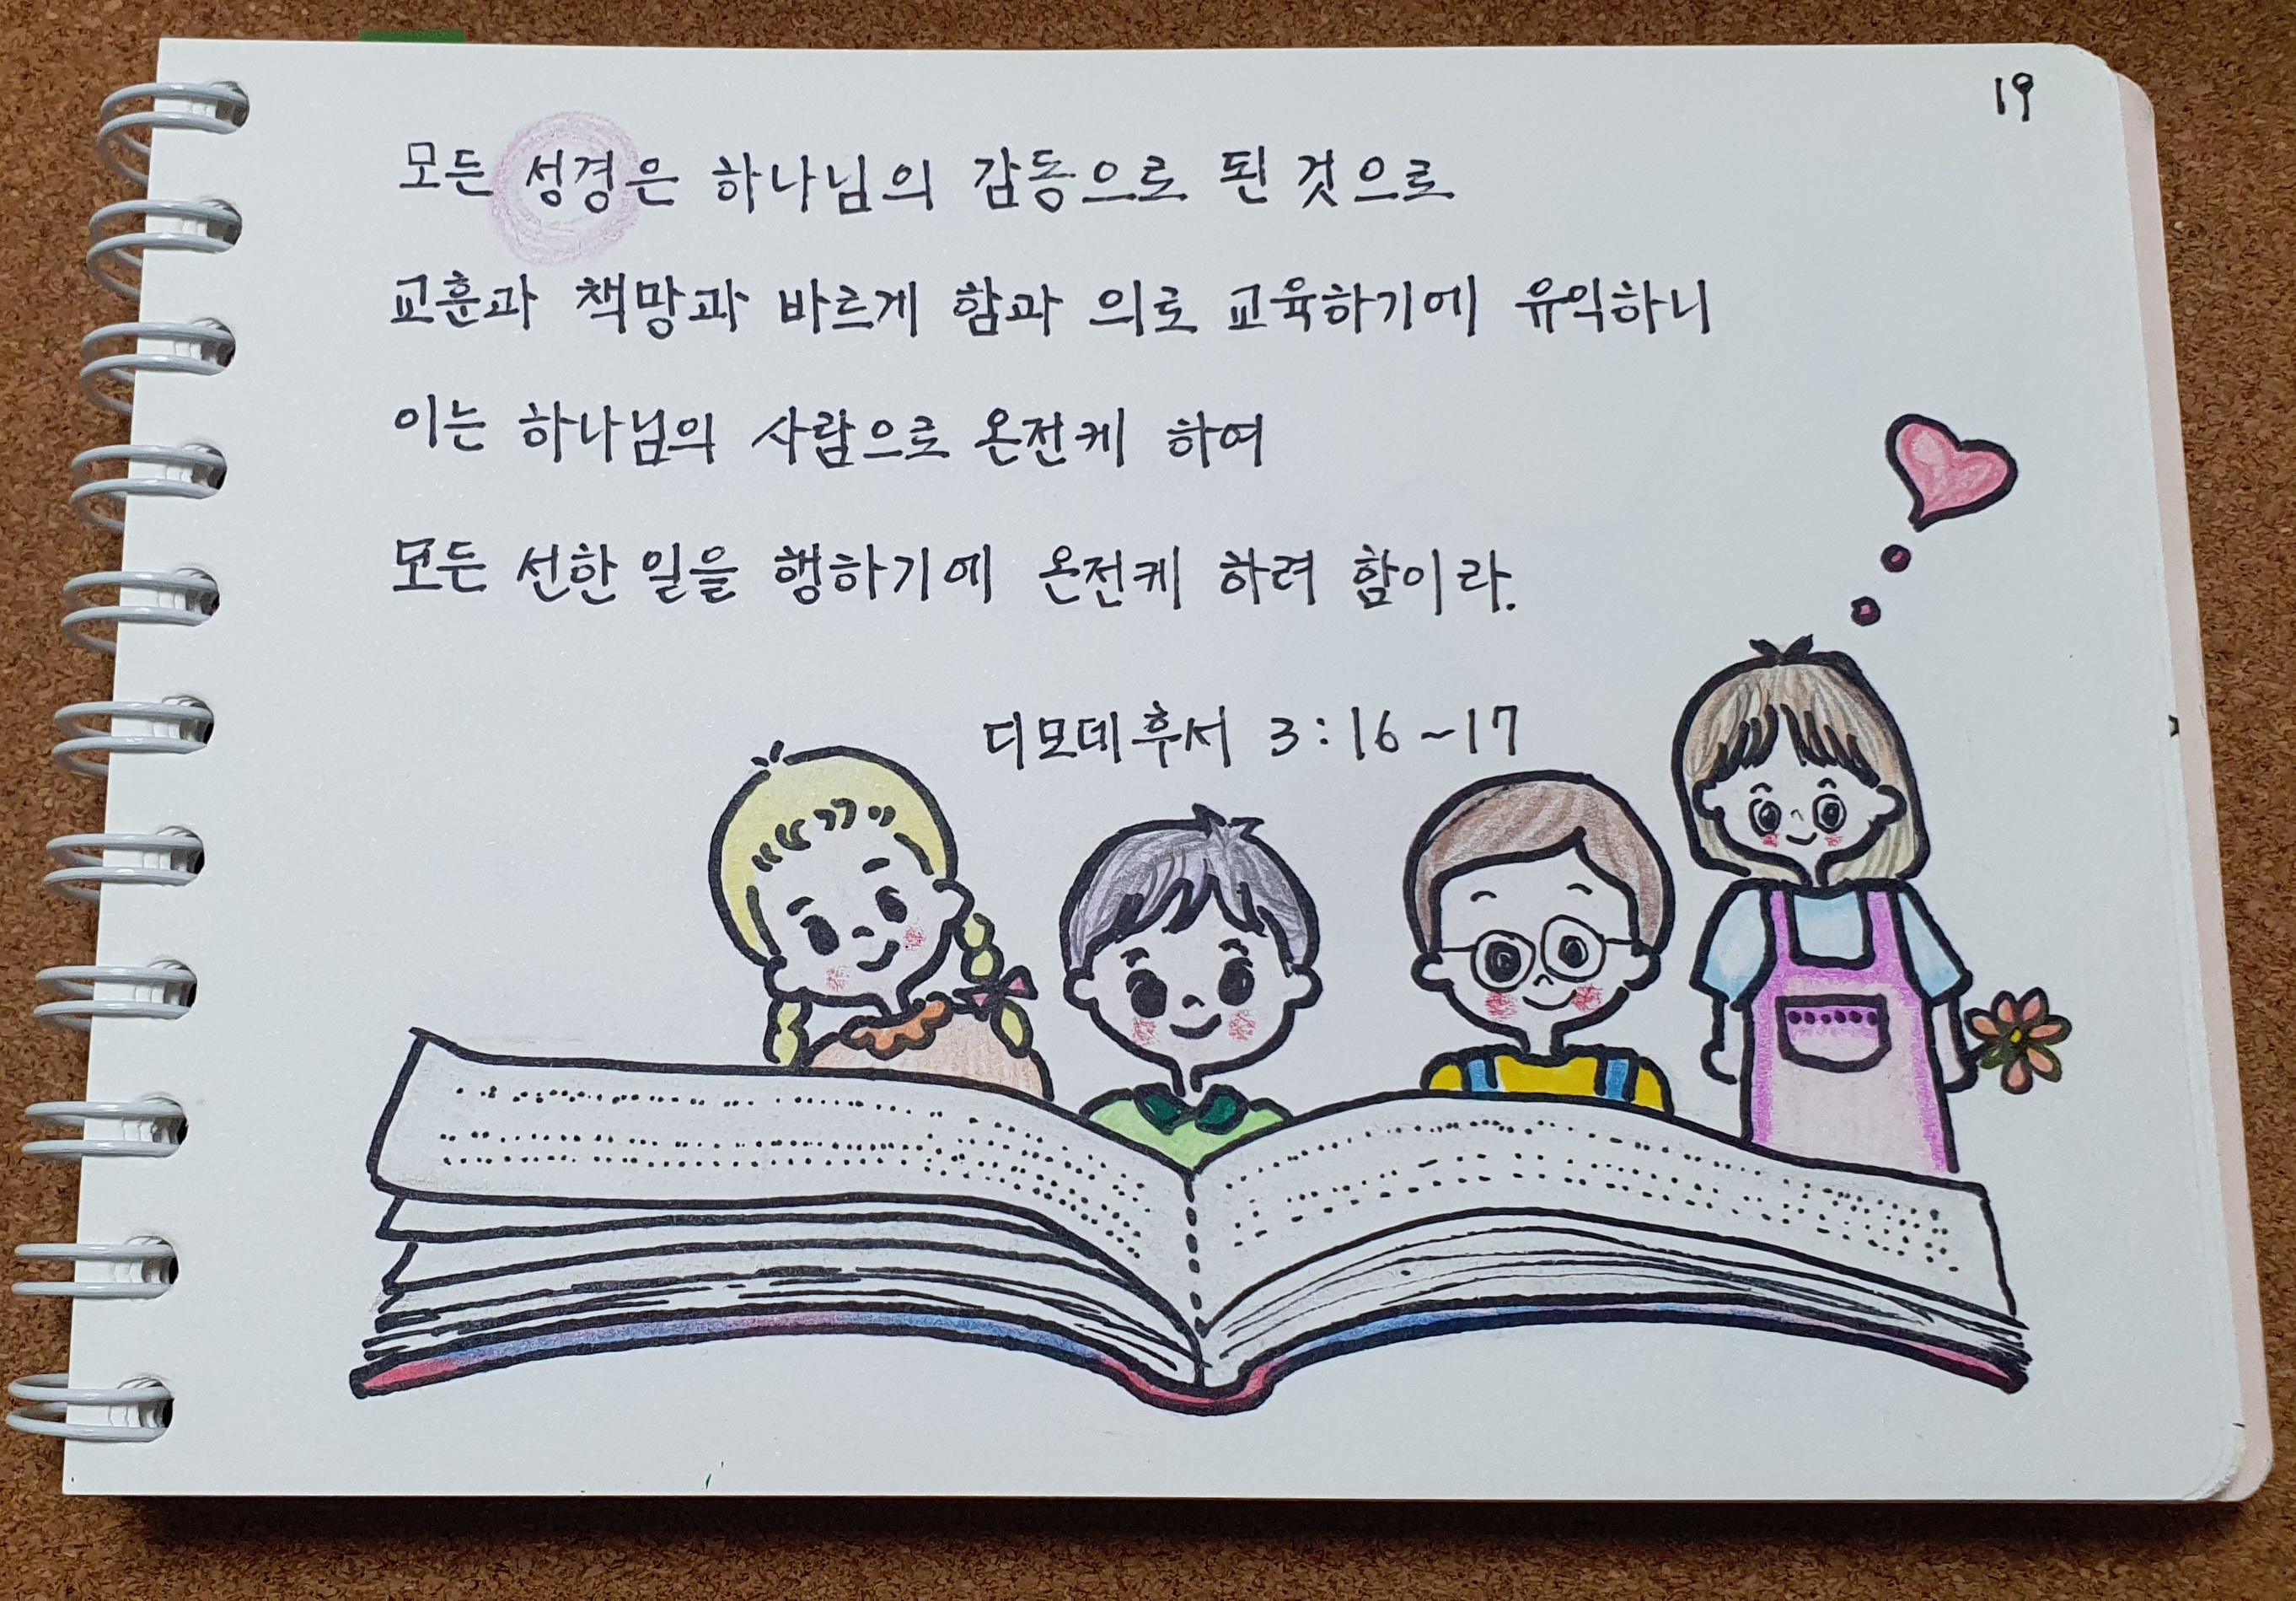 19
모든 성경은 하나님의 감동으로 된 것으로
교훈과 책망과 바르게 함과 의로 교육하기에 유익하니
이는 하나님의 사람으로 온전케 하여
모든 선한 일을 행하기에 온전케 하려 함이라.
디모데후서 3:16~17